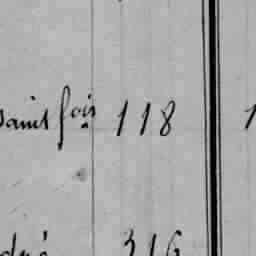 saint fois 118 1
dré 316